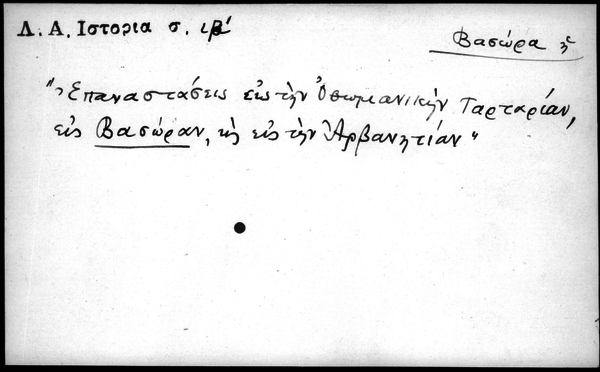 Δ. Α. Ιστορια σ. ιβ'
Βασώρα ἡ
"Ἐπαναστάσεις εἰς τὴν Ὀθωμανικὴν Ταρταρίαν,
εἰς Βασώραν, κὶ εἰς τὴν Ἀρβανητίαν"